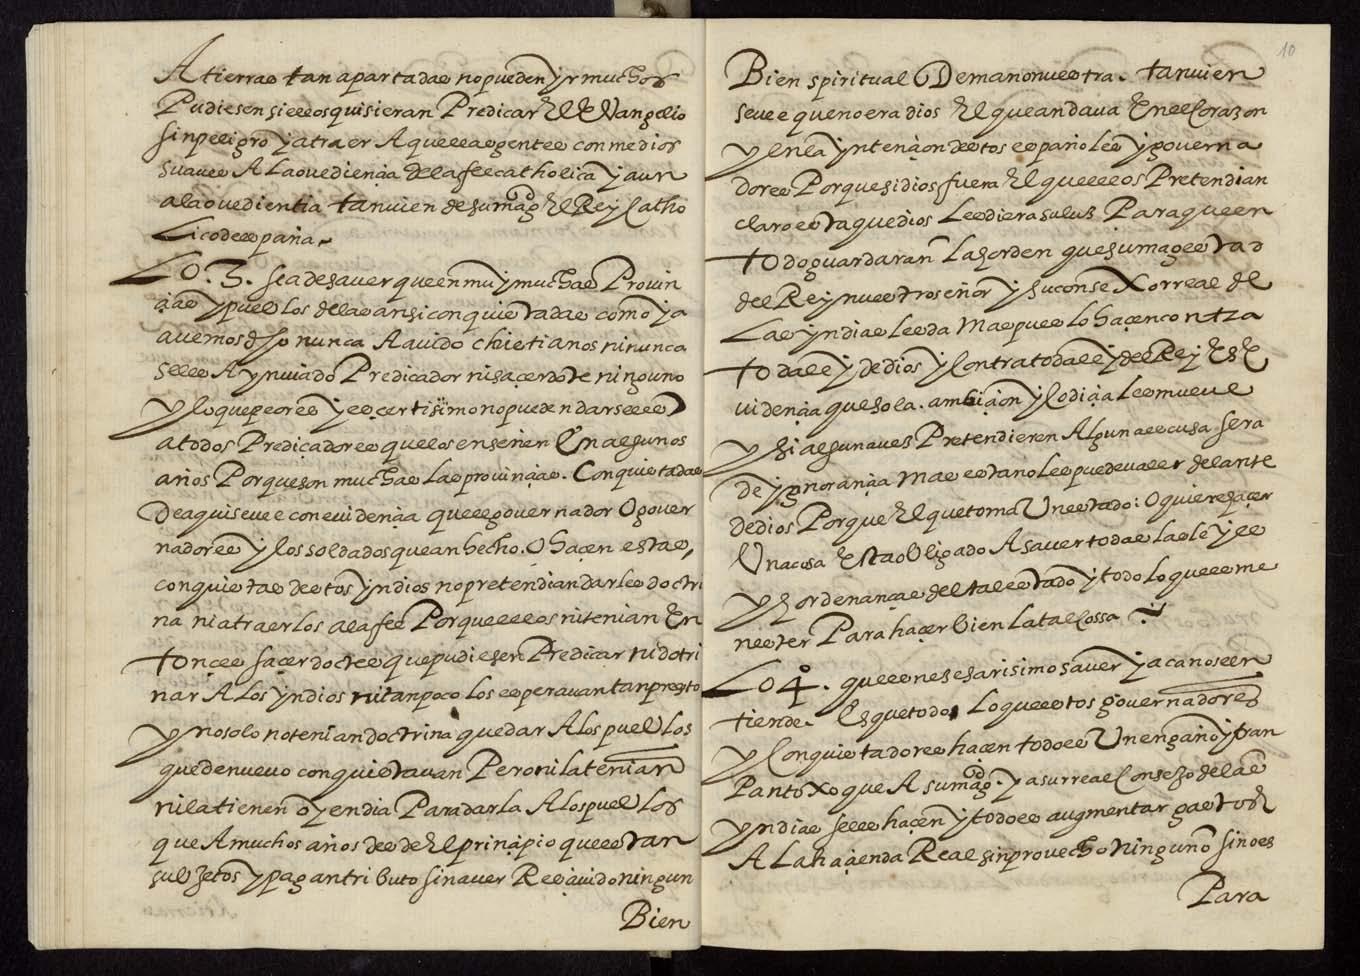 A tierras tan apartadas no pueden yr muchos
Pudiesen si ellos quisieran Predicar El Evangelio
sin peligro y atraer A quellas gentes con medios
suaues A la ouediençia de la fee catholica y aun
a la ouedientia tanuien de su magd El Rey Catho
Lico de españa.
Lo .3. sea de sauer que en muy muchas Prouin
çias y pueblos de las ansi conquistadas como ya
auemos dho nunca A auido christianos ni nunca
se les A ynuiado Predicador ni saçerdote ninguno
y lo que peor es y es certisimo no pueden darseles
a todos Predicadores que los enseñen En algunos
años Porque son muchas las prouinçias. Conquistadas
De aqui se ue e con euidençia que el gouernador O gouer
nadores y los soldados que an hecho. O haçen estas,
conquistas destos yndios no pretendian darles doctri
na ni atraerlos a la fee Porque ellos ni tenian En
tonçes saçerdotes que pudiesen Predicar ni dotri
nar A los yndios ni tanpoco los esperauan tan presto
y no solo no tenian doctrina que dar A los pueblos
que de nueuo conquistauan Pero ni la tenian
ni la tienen oy en dia Para darla A los pueblos
que A muchos años desde El prinçipio que estan
subjetos y pagan tributo sin auer Resçiuido ningun
Bien
10
Bien spiritual De mano nuestra. tanuien
se ue e que no era dios El que andaua En el Corazon
y En la yntençion destos españoles y gouerna
dores Porque si dios fuera El que ellos Pretendian
claro esta que dios Les diera su luz Para que en
todo guardaran La horden que su magestad
del Rey nuestro señor y su consexo rreal de
Las yndias Les da Mas pues lo haçen contra
toda ley de dios y Contra toda ley del Rey Es E
uidençia que sola. ambiçion y Codiçia Les mueue
y si alguna uez Pretendieren Alguna escusa sera
de ygnorançia Mas esta no Les puede ualer delante
de dios Porque El que toma Un estado: O quiere haçer
Una cosa Esta obligado A sauer todas las leyes
y hordenanças del tal estado y todo lo que es me
nester Para haçer bien La tal Cossa
Lo 4º. que es nesesarisimo sauer ya ca no se en
tiende. Es que todo Lo que estos gouernadores
y Conquistadores haçen todo es Un engaño y tran
Pantoxo que A su magd. y a su rreal Consejo de las
yndias se les haçen y todo es augmentar gastos
A La haçienda Real sin prouecho ninguno sino es
Para